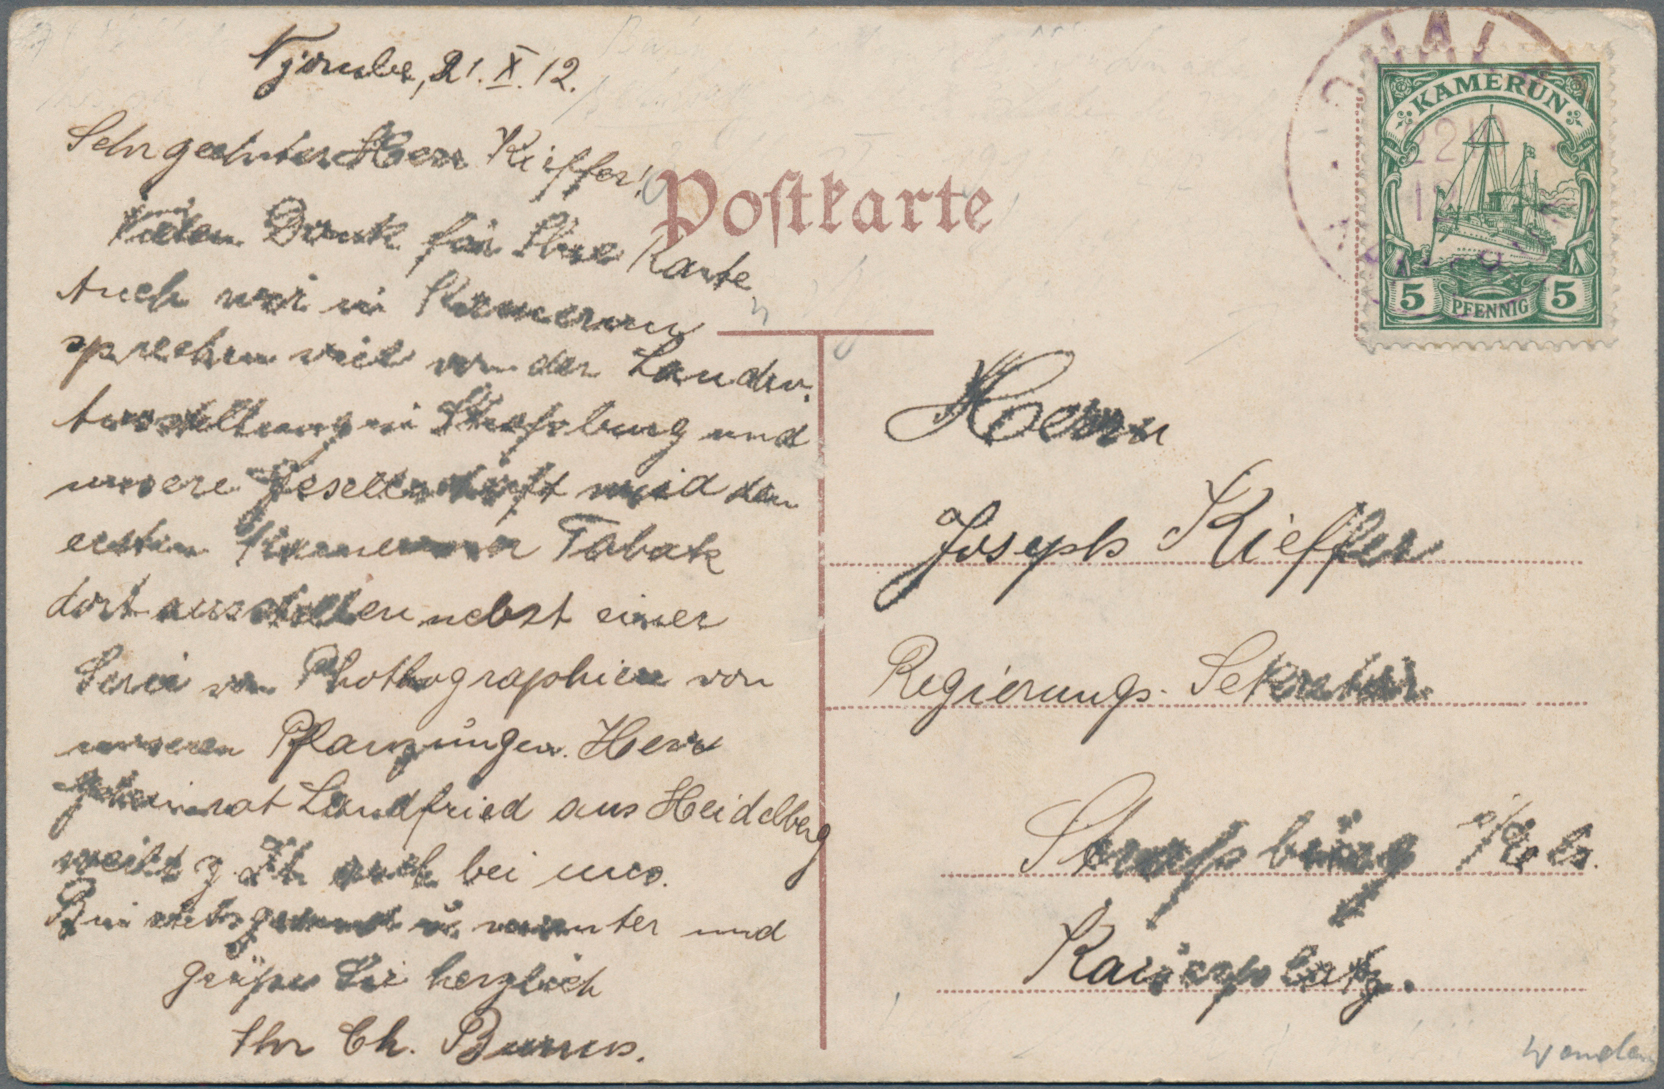 Njombe, 21. X. 12.
Sehr geehrter Herr Kieffer!
Vielen Dank für Ihre Karte
Auch wir in Kamerun
sprechen viel von der Landw.
Ausstellung in Straßburg und
unsere Gesellschaft wird den
ersten Kameruner Tabak
dort ausstellen nebst einer
Serie von Phothographien von
unseren Pflanzungen. Herr
Geheimrat Landfried aus Heidelberg
weilt z. Zt. auch bei uns.
Bin stets gesund u. munter und
grüße Sie herzlich
Ihr Ch. Burrus.
Postkarte
KAMERUN
5 PFENNIG 5
Herrn
Joseph Kieffer
Regierungs-Sekretär
Straßburg i/Els.
Kaiserplatz.